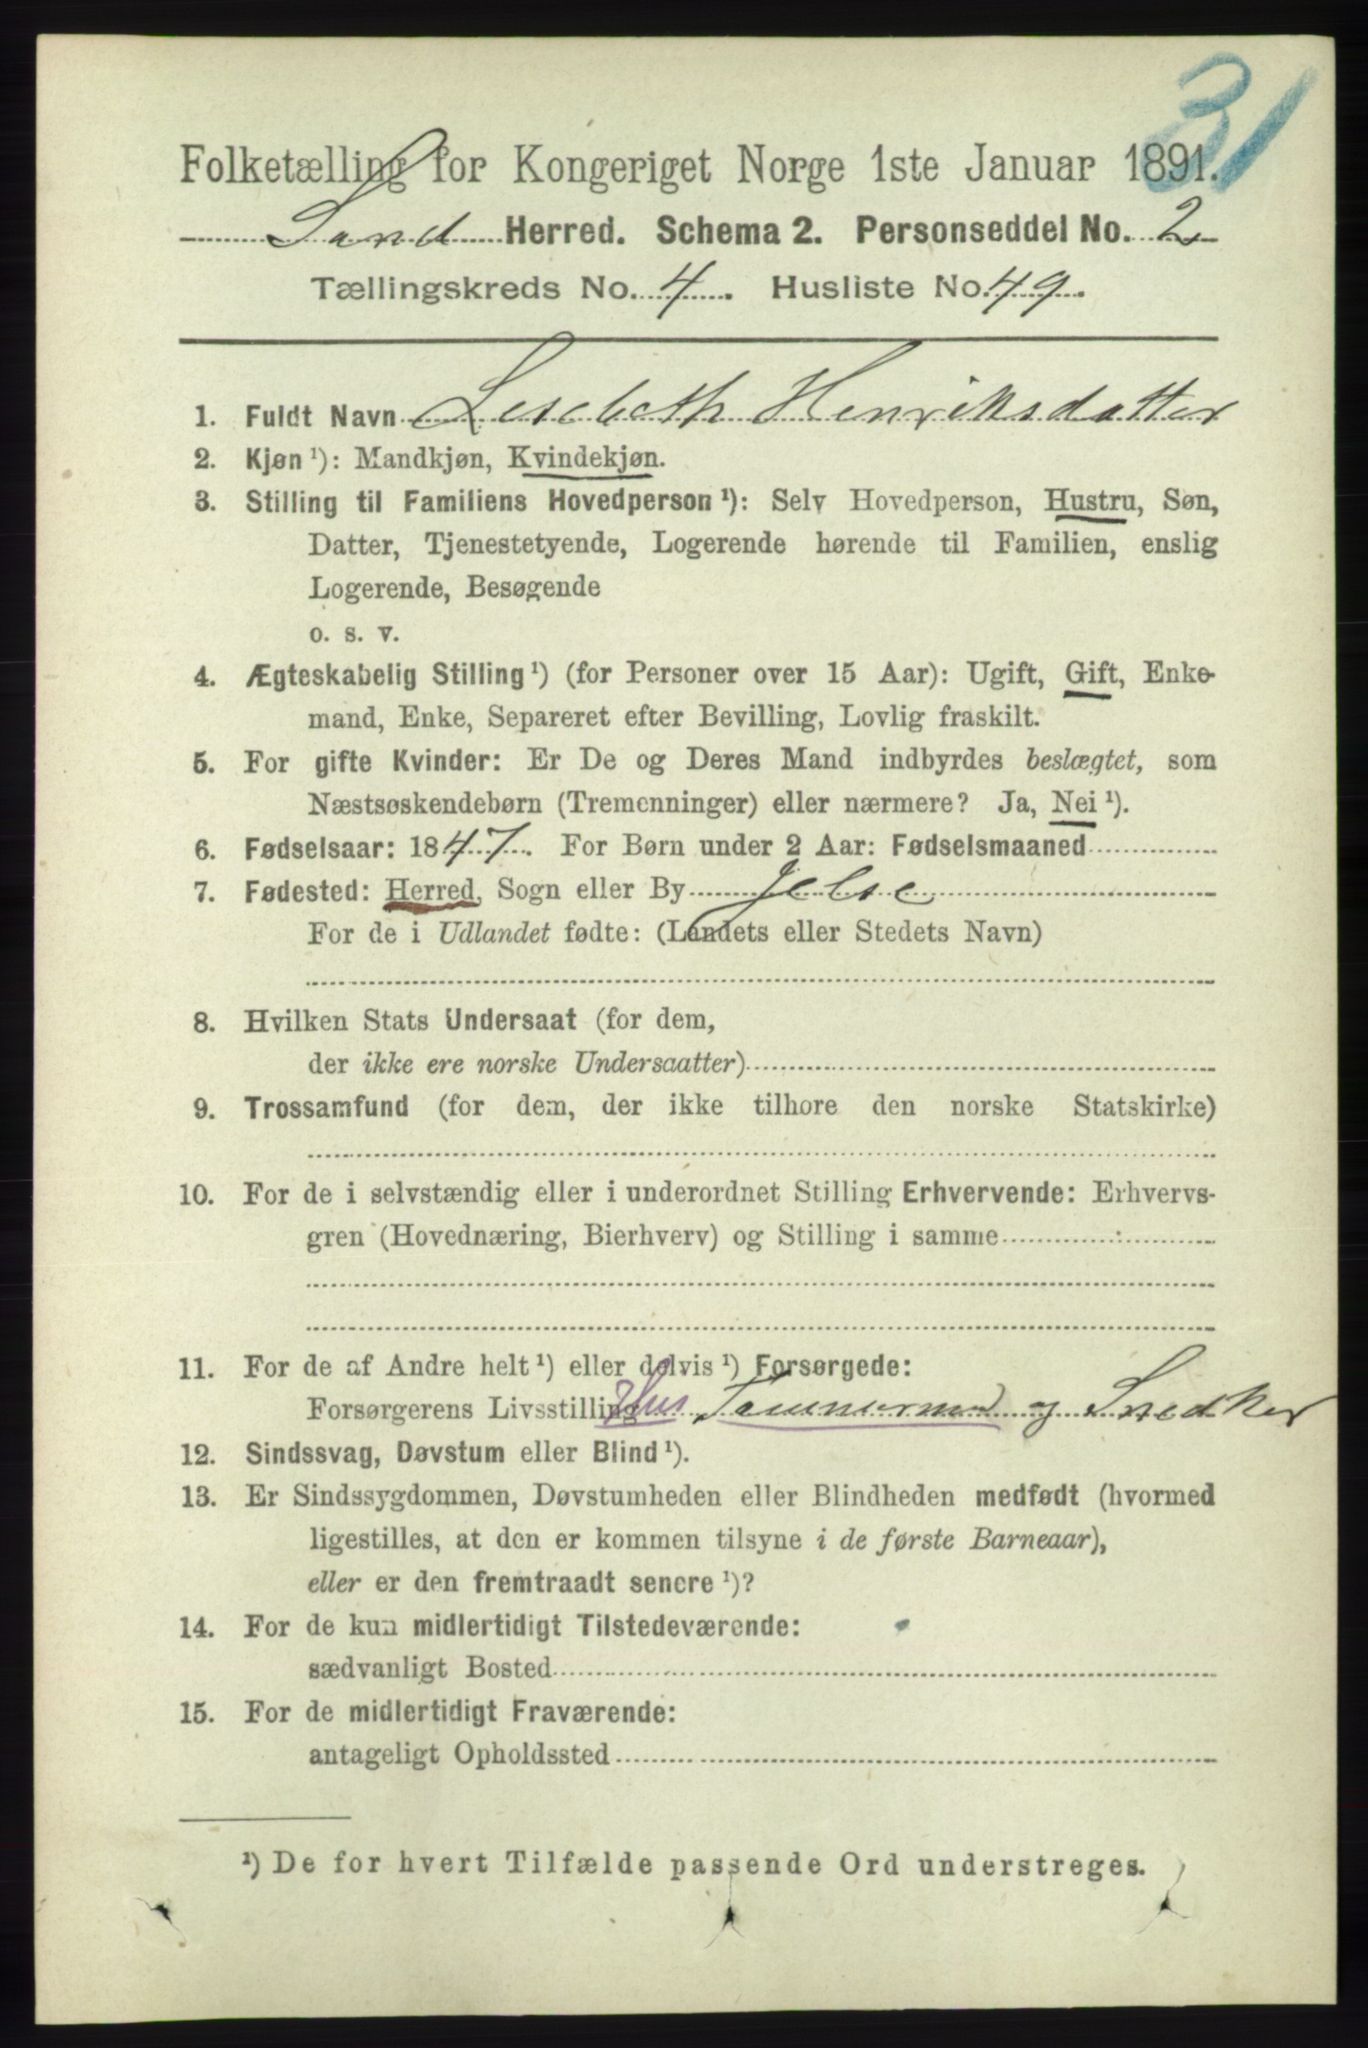 31
Folketælling for Kongeriget Norge 1ste Januar 1891.
Sand Herred. Schema 2. Personseddel No. 2
Tællingskreds No. 4. Husliste No. 49.
1. Fuldt Navn Lesebeth Henriksdatter
2. Kjøn ¹): Mandkjøn, Kvindekjøn.
3. Stilling til Familiens Hovedperson ¹): Selv Hovedperson, Hustru, Søn,
Datter, Tjenestetyende, Logerende hørende til Familien, enslig
Logerende, Besøgende
o. s. v.
4. Ægteskabelig Stilling ¹) (for Personer over 15 Aar): Ugift, Gift, Enke-
mand, Enke, Separeret efter Bevilling, Lovlig fraskilt.
5. For gifte Kvinder: Er De og Deres Mand indbyrdes beslægtet, som
Næstsøskendebørn (Tremenninger) eller nærmere? Ja, Nei ¹).
6. Fødselsaar: 1847. For Børn under 2 Aar: Fødselsmaaned
7. Fødested: Herred, Sogn eller By Jelse
For de i Udlandet fødte: (Landets eller Stedets Navn)
8. Hvilken Stats Undersaat (for dem,
der ikke ere norske Undersaatter)
9. Trossamfund (for dem, der ikke tilhøre den norske Statskirke)
10. For de i selvstændig eller i underordnet Stilling Erhvervende: Erhvervs-
gren (Hovednæring, Bierhverv) og Stilling i samme
11. For de af Andre helt ¹) eller delvis ¹) Forsørgede:
Forsørgerens Livsstilling Hus Tømmermand og Snedker
12. Sindssvag, Døvstum eller Blind ¹).
13. Er Sindssygdommen, Døvstumheden eller Blindheden medfødt (hvormed
ligestilles, at den er kommen tilsyne i de første Barneaar),
eller er den fremtraadt senere ¹)?
14. For de kun midlertidigt Tilstedeværende:
sædvanligt Bosted
15. For de midlertidigt Fraværende:
antageligt Opholdssted
¹) De for hvert Tilfælde passende Ord understreges.